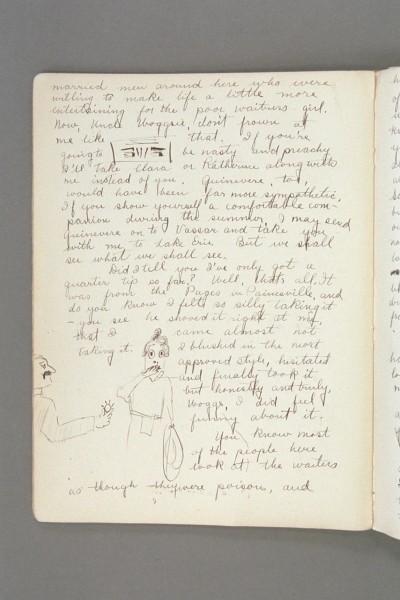 married men around here who were
willing to make life a little more
entertaining for the poor waitress girl.
Now, Uncle Woggsie, don't frown at
me like that. If you're
going to be nasty and preachy
I'll take Clara or Katherine along with
me instead of you. Guinevere, too,
would have been far more sympathetic.
If you show yourself a comfortable com-
panion during the summer, I may send
Guinevere on to Vassar and take you
with me to Lake Erie. But we shall
see what we shall see.
Did I tell you I've only got a
quarter tip so far? Well, that's all. It
was from the Pages in Painesville, and
do you know I felt so silly taking it
- you see he shoved it right at me,
that I came almost not
taking it. I blushed in the most
approved style, hesitated
and finally took it
but honestly and truly,
Woggs, I did feel
funny about it.
You know most
of the people here
look at the waiters
as though they were poison, and